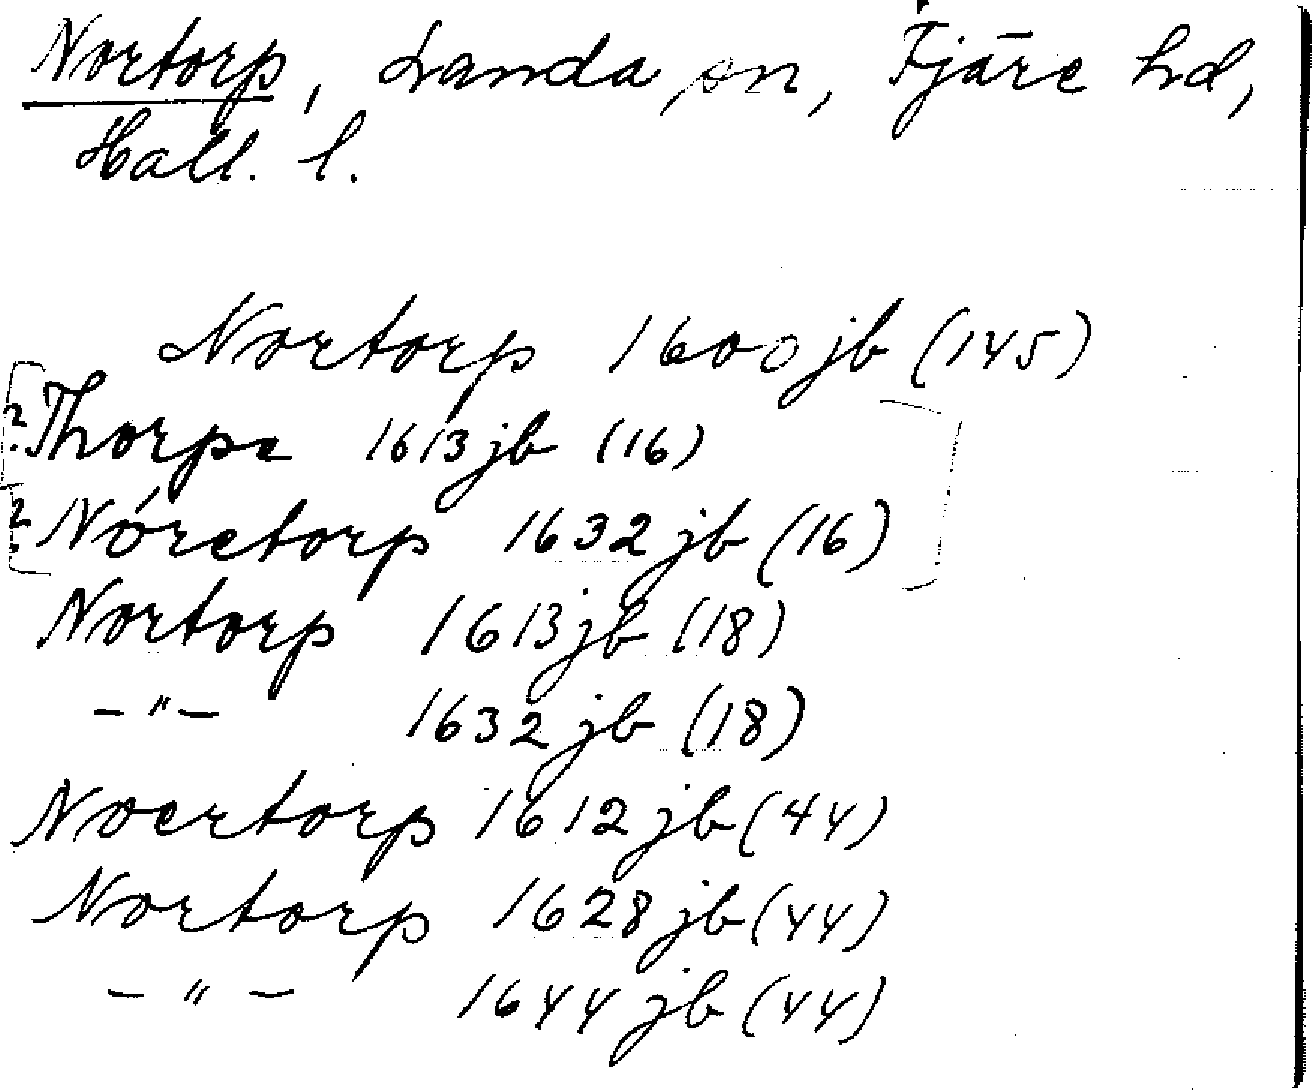 Nortorp, Landa sn, Fjäre hd,
Hall. l.
Nortorp 1600 jb (145)
[?Thorpe 1613 jb (16)
[?Nóretorp 1632 jb (16)]
Nortorp 1613 jb (18)
–"– 1632 jb (18)
Noertorp 1612 jb (44)
Nortorp 1628 jb (44)
–"– 1644 jb (44)